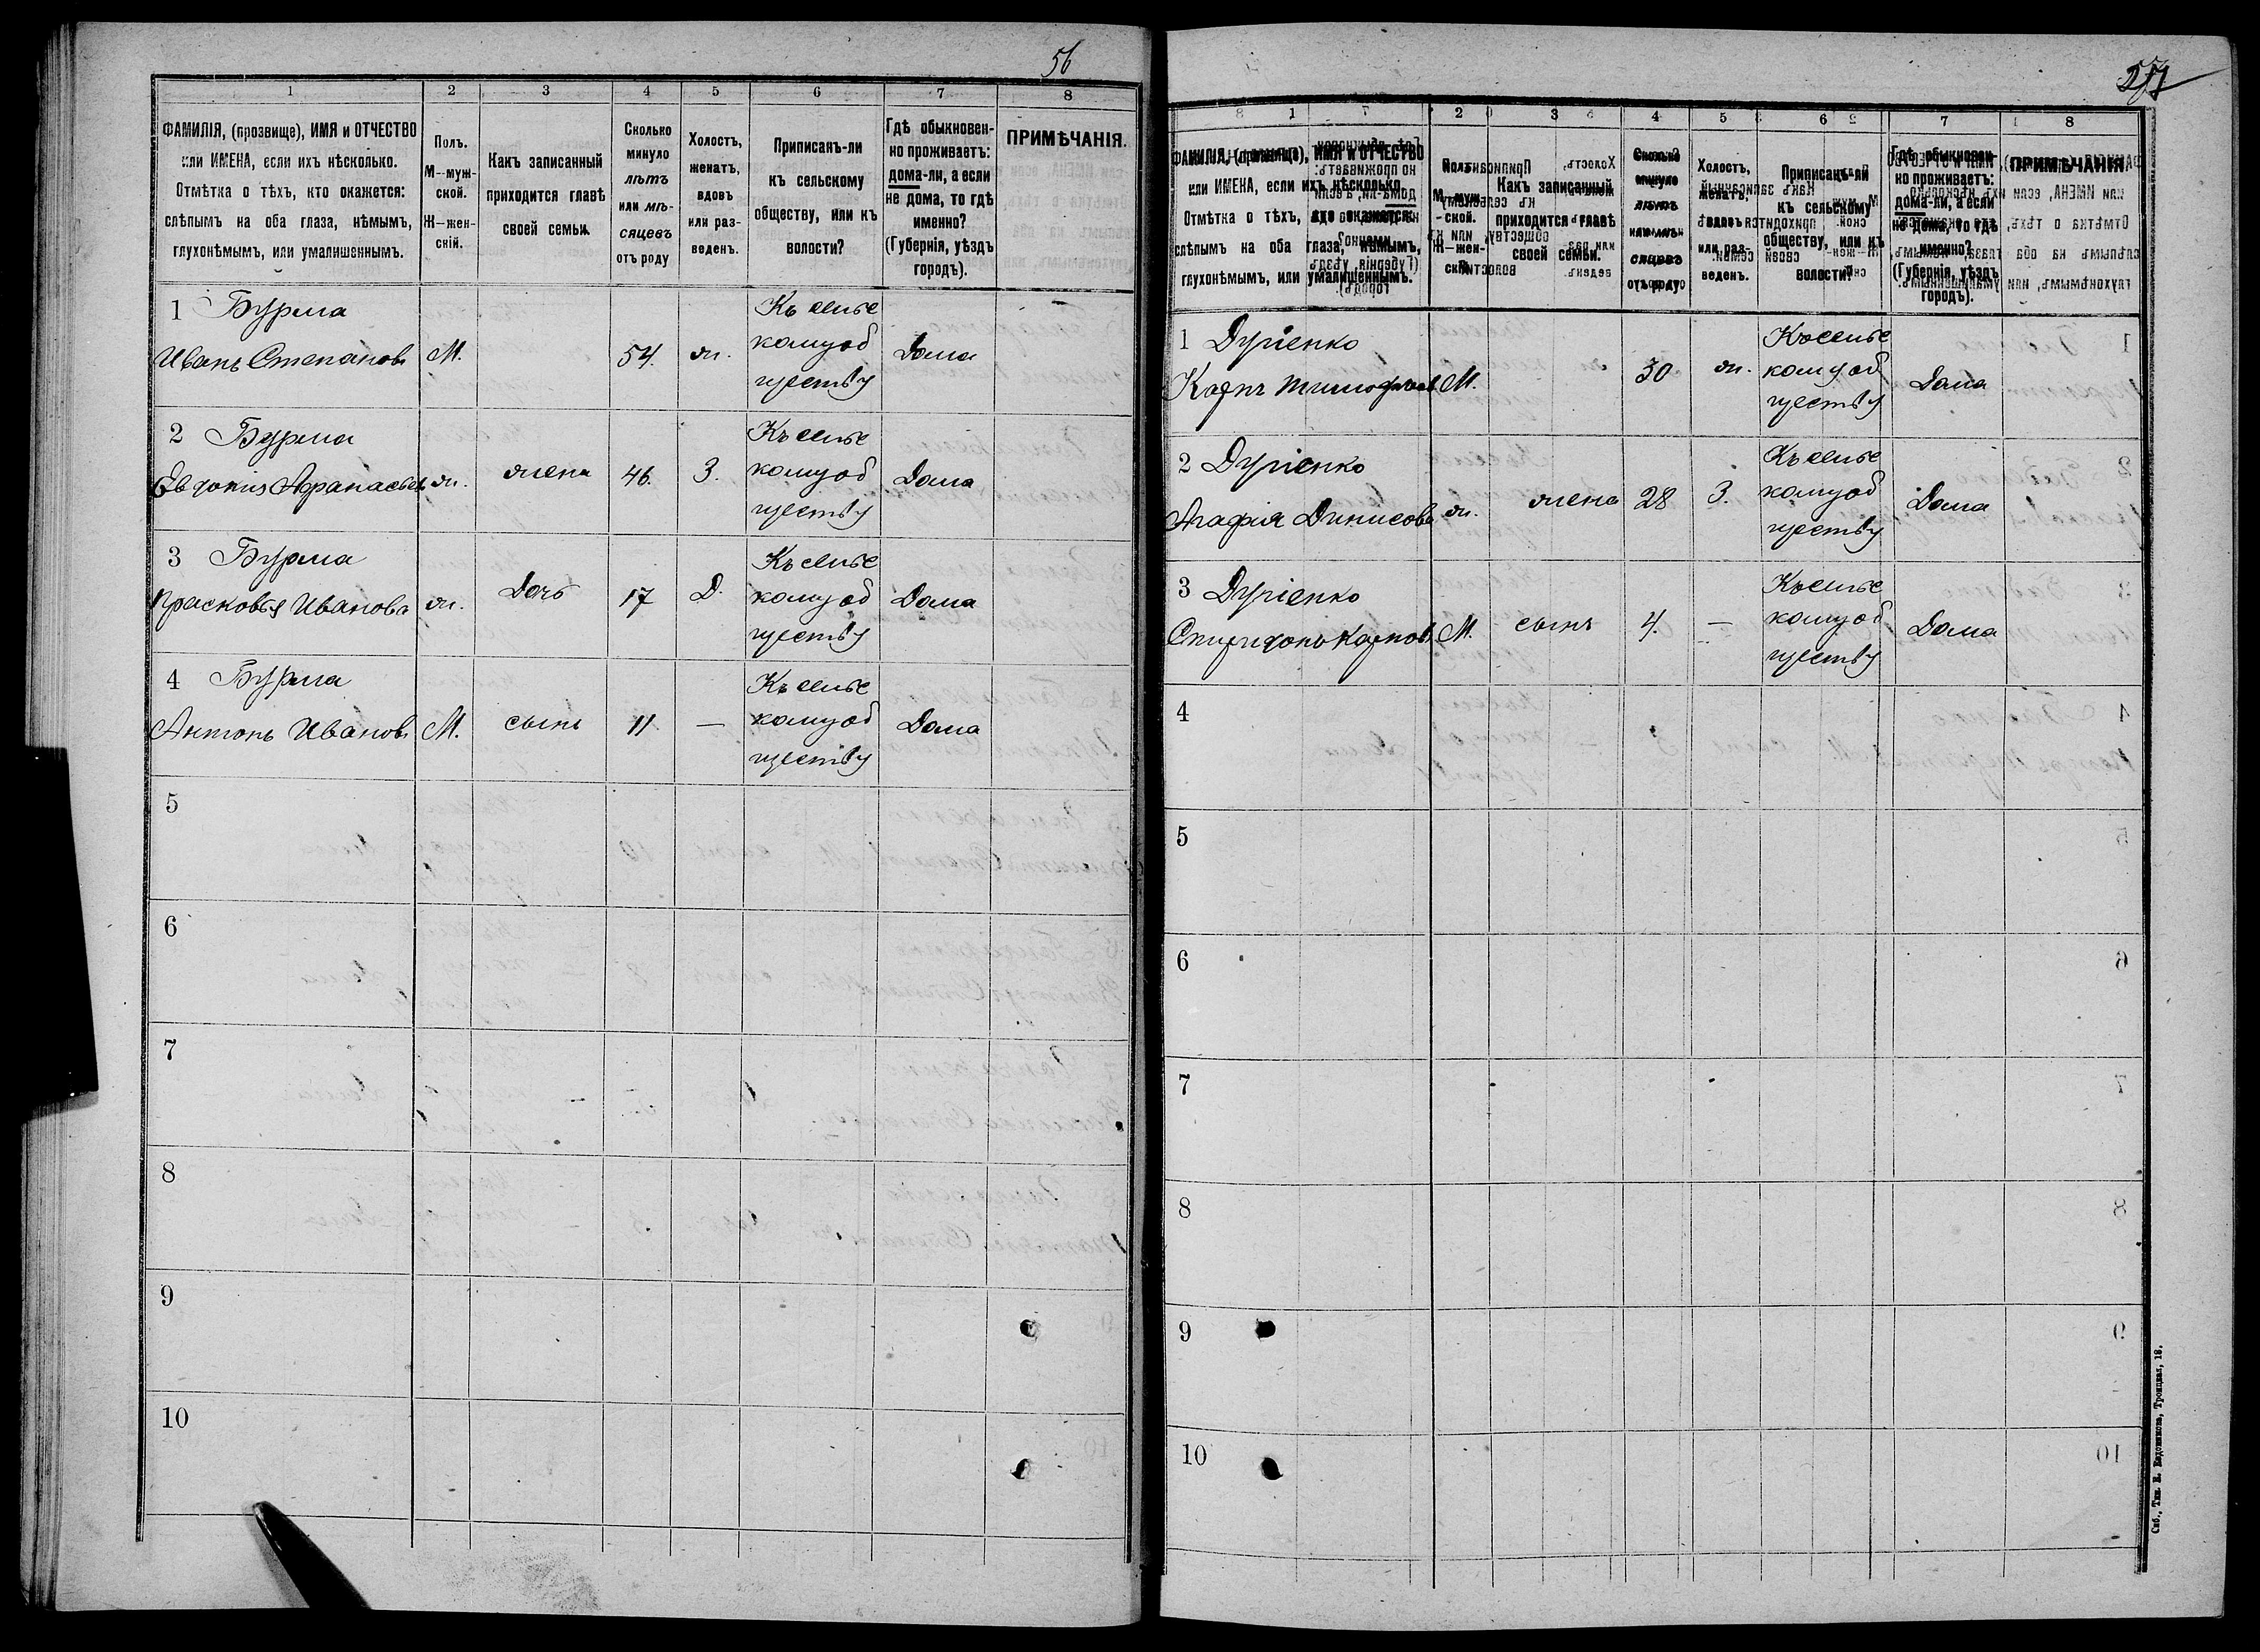 56
1 2 3 4 5 6 7 8
ФАМИЛІЯ, (прозвище), ИМЯ и ОТЧЕСТВО
или ИМЕНА, если ихъ нѣсколько.
Отмѣтка о тѣхъ, кто окажется:
слѣпымъ на оба глаза, нѣмымъ,
глухонѣмымъ, или умалишеннымъ.
Полъ.
М—муж-
ской.
Ж—жен-
скій.
Какъ записанный
приходится главѣ
своей семьи.
Сколько
минуло
лѣтъ
или мѣ-
сяцевъ
отъ роду
Холостъ,
женатъ,
вдовъ
или раз-
веденъ.
Приписанъ-ли
къ сельскому
обществу, или къ
волости?
Гдѣ обыкновен-
но проживаетъ:
дома-ли, а если
не дома, то гдѣ
именно?
(Губернія, уѣздъ
городъ).
ПРИМѢЧАНІЯ.
1 Бурма
Иванъ Степановъ М. 54. ж.
Къ сельс
кому об
ществу
Дома
2 Бурма
Евдокия Афанасьев ж. жена 46. З.
Къ сельс
кому об
ществу
Дома
3 Бурма
Прасковья Иванова ж. Дочь 17 Д.
Къ сельс
кому об
ществу
Дома
4 Бурма
Антонъ Ивановъ М. сынъ 11 —
Къ сельс
кому об
ществу
Дома
5
6
7
8
9
10
1 2 3 4 5 6 7 8
ФАМИЛІЯ, (прозвище), ИМЯ и ОТЧЕСТВО
или ИМЕНА, если ихъ нѣсколько.
Отмѣтка о тѣхъ, кто окажется:
слѣпымъ на оба глаза, нѣмымъ,
глухонѣмымъ, или умалишеннымъ.
Полъ.
М—муж-
ской.
Ж—жен-
скій.
Какъ записанный
приходится главѣ
своей семьи.
Сколько
минуло
лѣтъ
или мѣ-
сяцевъ
отъ роду
Холостъ,
женатъ,
вдовъ
или раз-
веденъ.
Приписанъ-ли
къ сельскому
обществу, или къ
волости?
Гдѣ обыкновен-
но проживаетъ:
дома-ли, а если
не дома, то гдѣ
именно?
(Губернія, уѣздъ
городъ).
ПРИМѢЧАНІЯ.
1
Карпъ Тимофѣевъ М. 30 ж.
Къ сельс
кому об
ществу
Дома
2
Агафия Динисова ж. жена 28 З.
Къ сельс
кому об
ществу
Дома
3
Спиридонъ Карповъ М. сынъ 4. —
Къ сельс
кому об
ществу
Дома
4
5
6
7
8
9
10